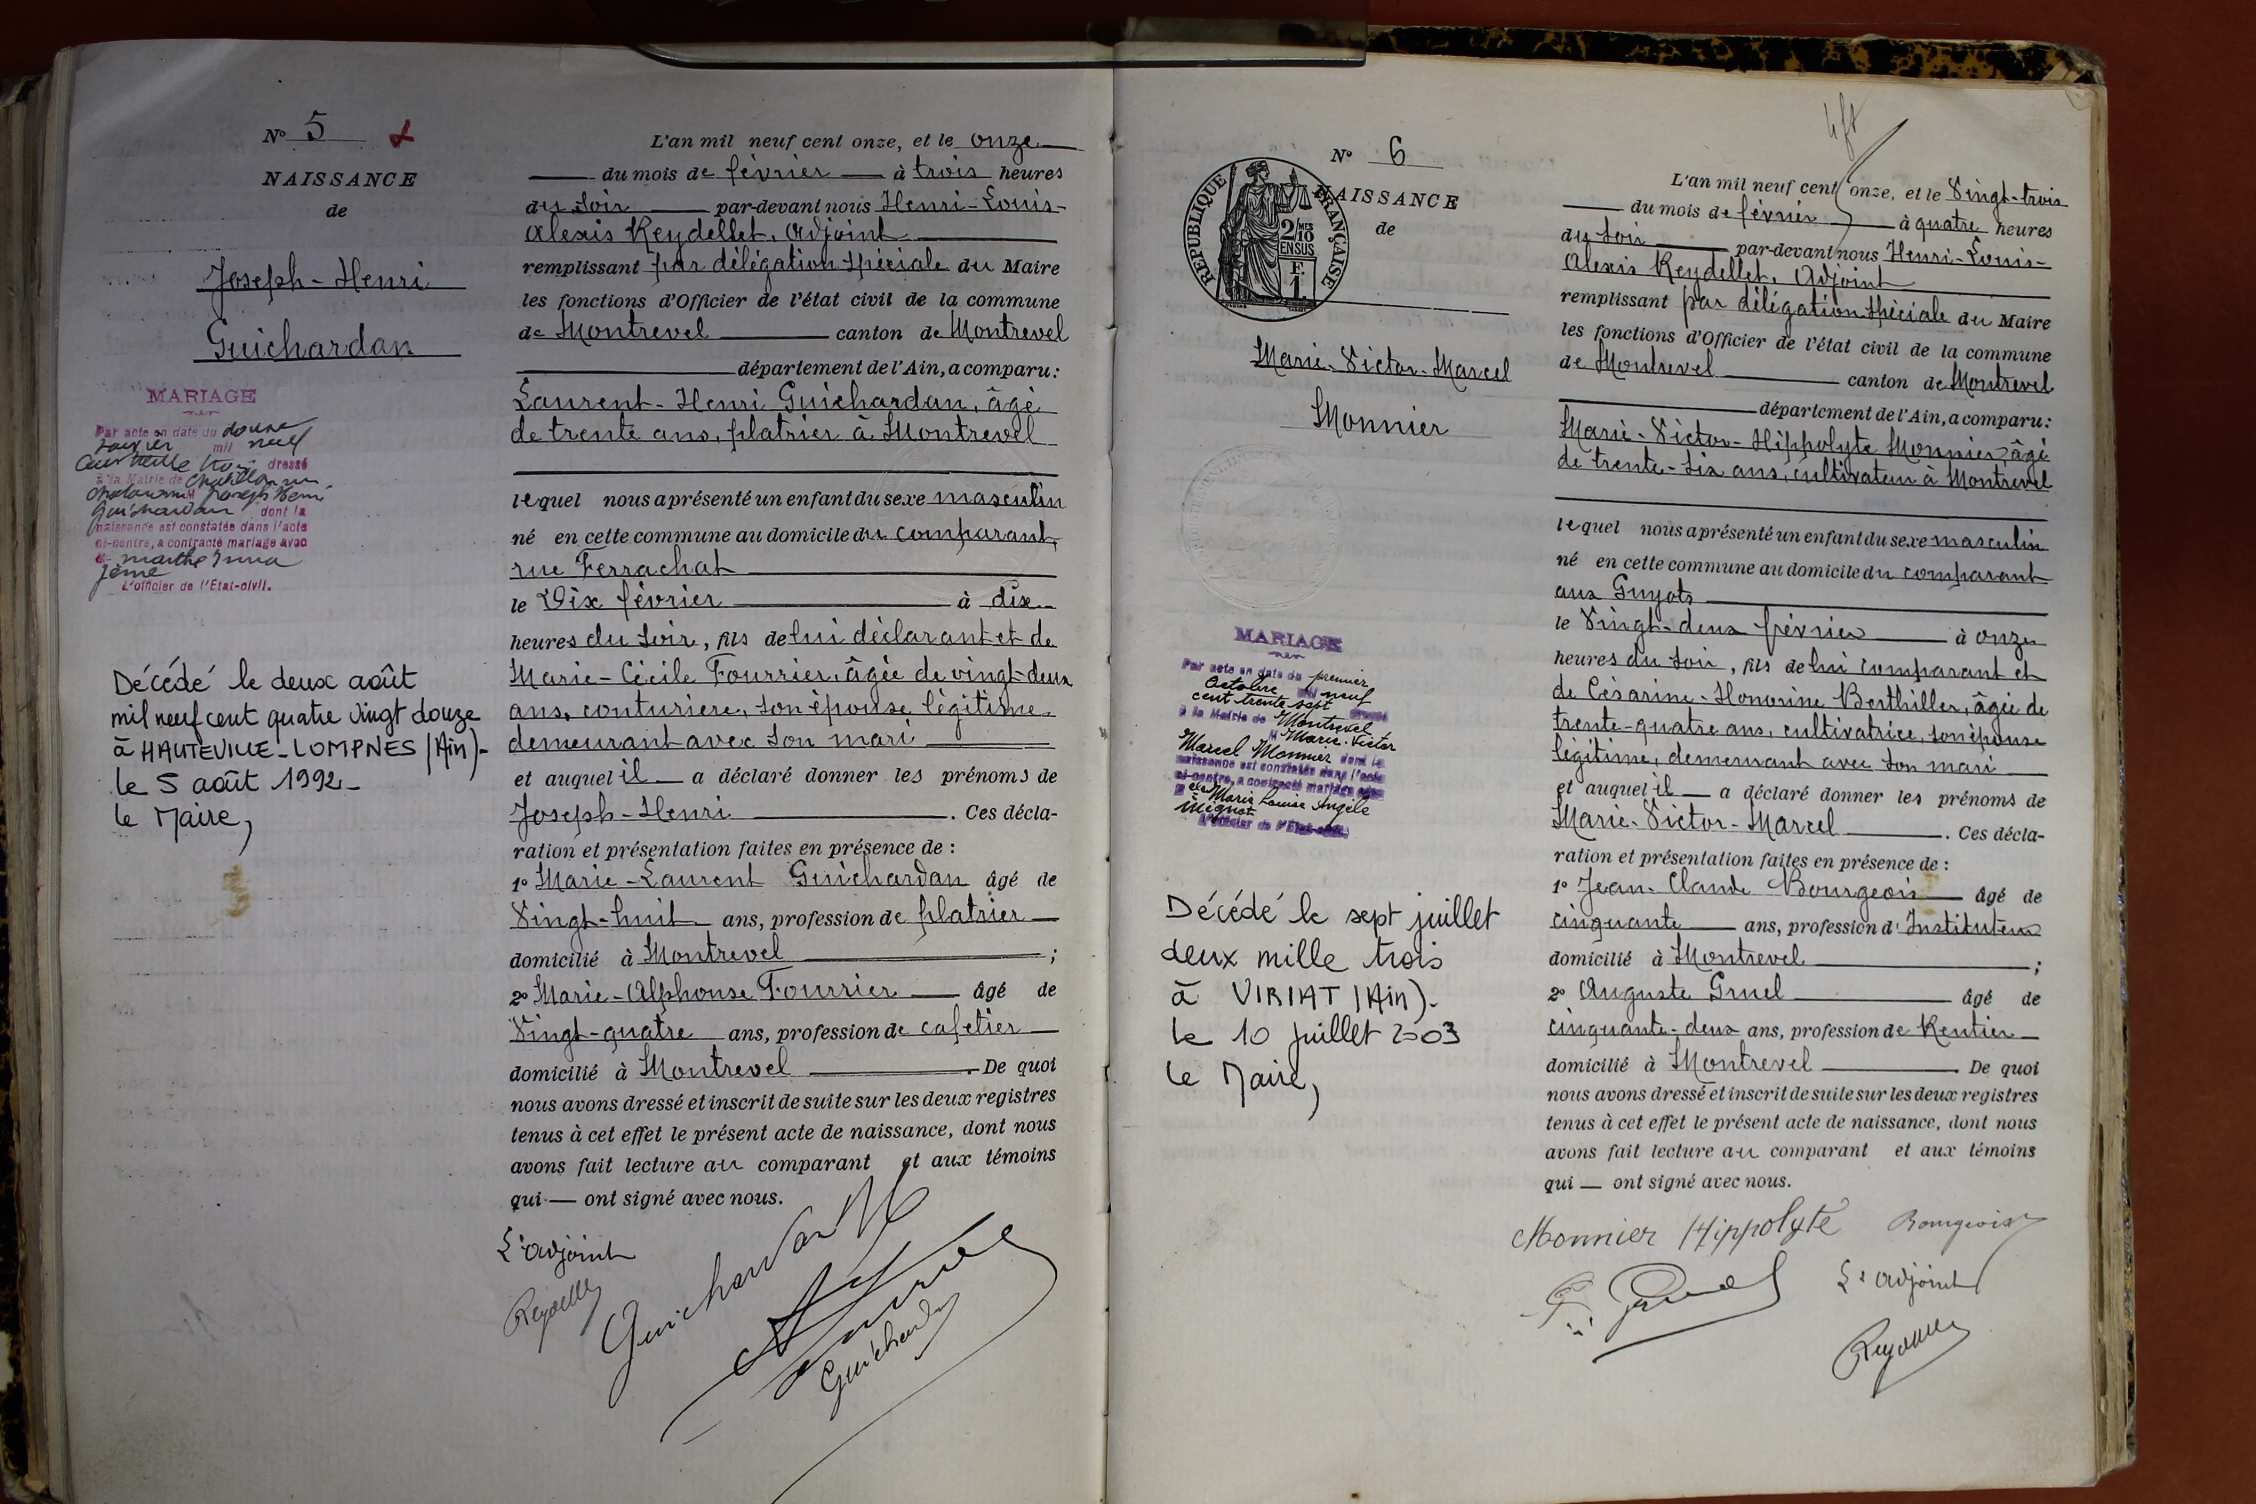 N° 5
NAISSANCE
de
Joseph-Henri
Guichardan
MARIAGE
Par acte en date du douze
janvier mil neuf
cent trente trois dressé
à la Mairie de Chatillon sur
Chalaronne M Joseph Henri
Guichardan dont la
naissance est constatée dans l'acte
ci-contre, a contracté mariage avec
Marthe
L'officier de l'Etat-civil.
Décédé le deux août
mil neuf cent quatre vingt douze
à HAUTEVILLE-LOMPNES (Ain)-
le 5 août 1992-
le Maire,
L'an mil neuf cent onze, et le onze
du mois de février à trois heures
du soir par-devant nous Henri-Louis-
Alexis Reydellet, Adjoint
remplissant par délégation spéciale du Maire
les fonctions d'Officier de l'état civil de la commune
de Montrevel canton de Montrevel
département de l'Ain, a comparu:
Laurent-Henri Guichardan, âgé
de trente ans, platrier à Montrevel
lequel nous a présenté un enfant du sexe masculin
né en cette commune au domicile du comparant,
rue Ferrachat
le Dix février à dix
heures du soir, fils de lui déclarant et de
Marie-Cécile Fourrier, âgée de vingt-deux
ans, couturière, son épouse légitime
demeurant avec son mari
et auquel il a déclaré donner les prénoms de
Joseph-Henri . Ces décla-
ration et présentation faites en présence de :
1° Marie-Laurent Guichardan âgé de
Vingt-huit ans, profession de platrier
domicilié à Montrevel ;
2° Marie-Alphonse Fourrier âgé de
Vingt-quatre ans, profession de cafetier
domicilié à Montrevel . De quoi
nous avons dressé et inscrit de suite sur les deux registres
tenus à cet effet le présent acte de naissance, dont nous
avons fait lecture au comparant et aux témoins
qui — ont signé avec nous.
L'adjoint
Reydellet
Guichardan
Fourrier
Guichardan
N° 6
RÉPUBLIQUE FRANÇAISE
2/10 MES
EN SUS
F.
1.
NAISSANCE
de
Marie-Victor-Marcel
Monnier
MARIAGE
Par acte en date du premier
Octobre mil neuf
cent trente sept dressé
à la Mairie de Montrevel
M Marie-Victor
Marcel Monnier dont la
naissance est constatée dans l'acte
ci-contre, a contracté mariage avec
Marie Louise Angèle
Mignot
L'officier de l'Etat-civil
Décédé le sept juillet
deux mille trois
à VIRIAT (Ain)-
le 10 juillet 2003
le Maire,
L'an mil neuf cent onze, et le Vingt-trois
du mois de février à quatre heures
du soir par-devant nous Henri-Louis-
Alexis Reydellet, Adjoint
remplissant par délégation spéciale du Maire
les fonctions d'Officier de l'état civil de la commune
de Montrevel canton de Montrevel
département de l'Ain, a comparu:
Marie-Victor-Hippolyte Monnier, âgé
de trente-six ans, cultivateur à Montrevel
lequel nous a présenté un enfant du sexe masculin
né en cette commune au domicile du comparant
aux Guyots
le Vingt-deux février à onze
heures du soir, fils de lui comparant et
de Césarine-Honorine Berthillier, âgée de
trente-quatre ans, cultivatrice, son épouse
légitime, demeurant avec son mari
et auquel il a déclaré donner les prénoms de
Marie-Victor-Marcel . Ces décla-
ration et présentation faites en présence de :
1° Jean-Claude Bourgeois âgé de
cinquante ans, profession d'Instituteur
domicilié à Montrevel ;
2° Auguste Gruel âgé de
cinquante-deux ans, profession de Rentier
domicilié à Montrevel . De quoi
nous avons dressé et inscrit de suite sur les deux registres
tenus à cet effet le présent acte de naissance, dont nous
avons fait lecture au comparant et aux témoins
qui — ont signé avec nous.
Monnier Hippolyte Bourgeois
Gruel L'adjoint
Reydellet